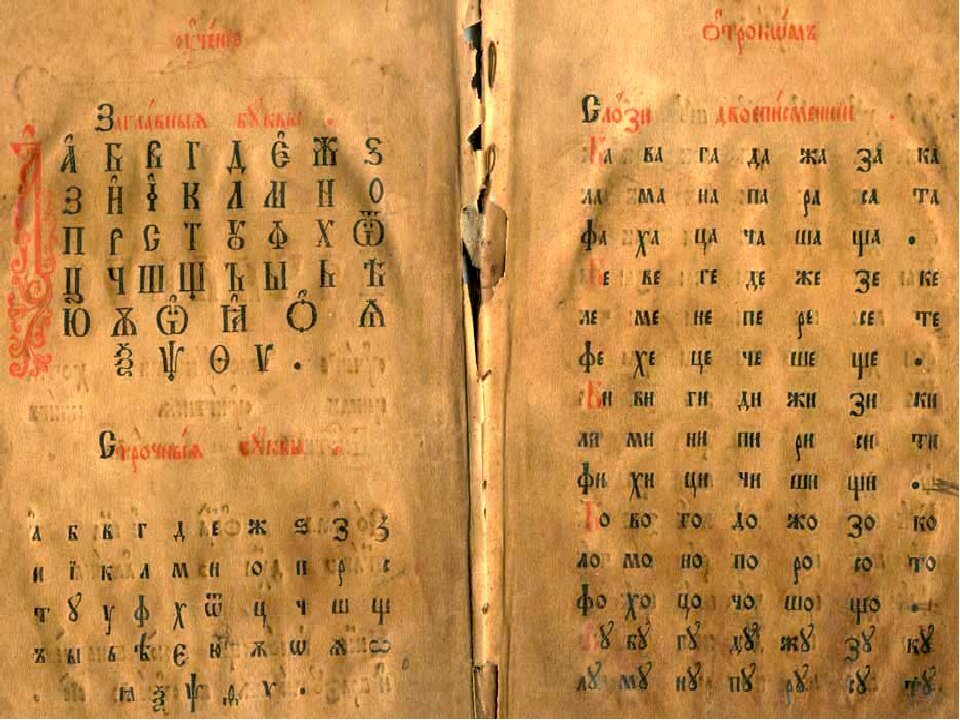 Заглавныя буквы .
А Б В Г Д Є Ж Ѕ
З И І К Л М Н О
П Р С Т Ꙋ Ф Х Ѿ
Ц Ч Ш Щ Ъ Ы Ь Ѣ
Ю Ѫ Ѡ Ꙗ Ѻ Ѧ
Ѯ Ѱ Ѳ Ѵ .
Строчныя буквы .
а б в г д е ж ѕ з
и ї к л м н о п р с
т ꙋ у ф х ѿ ц ч ш щ
ъ ы ь ѣ є ю ѫ ѡ ѧ
ѯ ѱ ѵ .
Отрокѡмъ
Слози двоеписменнии .
Ба ва га да жа за ка
ла ма на па ра са та
фа ха ца ча ша ща .
Бе ве ге де же зе ке
ле ме не пе ре се те
фе хе це че ше ще .
Би ви ги ди жи зи ки
ли ми ни пи ри си ти
фи хи ци чи ши щи .
Бо во го до жо зо ко
ло мо но по ро со то
фо хо цо чо шо що .
Бꙋ вꙋ гꙋ дꙋ жꙋ зꙋ кꙋ
лꙋ мꙋ нꙋ пꙋ рꙋ сꙋ тꙋ